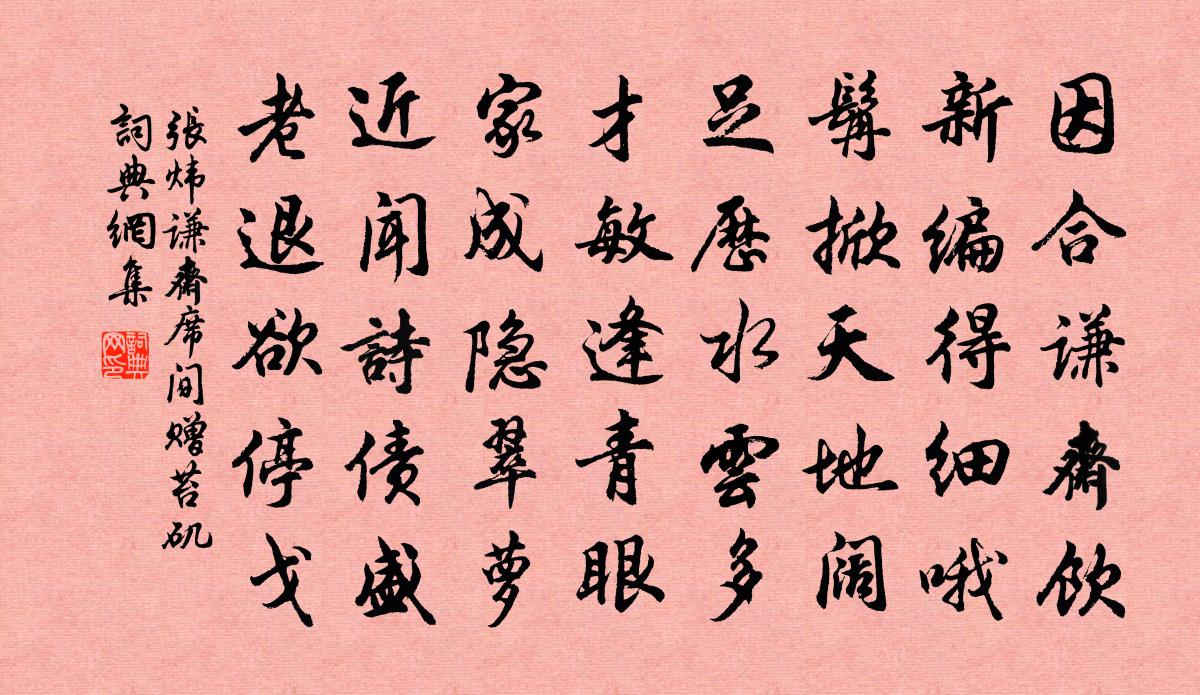 因合谦齋饮
新编得细哦
髯掀天地阔
足歷水雲多
才敏逢青眼
家成隐翠萝
近闻詩债盛
老退欲停戈
張炜谦齋席间赠苔矶
詞典網集
詞典网印